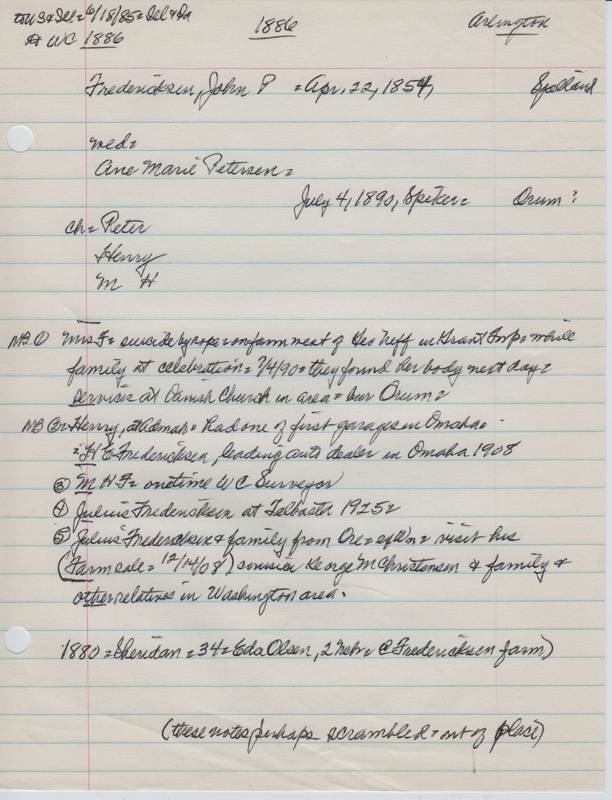 to US & Del = 6/18/85 = Del & Pa 1886 Arlington
At WC 1886
Fredericksen, John P = Apr. 22, 1854,
wed =
Ane Marie Petersen =
July 4, 1890, Spiker = Orum ?
ch = Peter
Henry
M H
NB ① Mrs F = suicide by rope = on farm next of Geo Neff in Grant Twp = while
family at celebration = 7/4/90 = they found her body next day =
services at Danish Church in area = bur Orum =
NB ② = Henry, at Admah = had one of first garages in Omaha =
= H E Fredericksen, leading auto dealer in Omaha 1908
③ M H F = onetime WC Surveyor
④ Julius Fredericksen at Telbasta 1925 =
⑤ Julius Fredericksen & family from Ore = = visit his
(Farm sale = 12/14/08) cousin George M Christensen & family &
other relatives in Washington area.
1880 = Sheridan = 34 = Eda Olsen, 2 Nebr = @ Fredericksen farm)
(these notes perhaps scrambled = out of place)